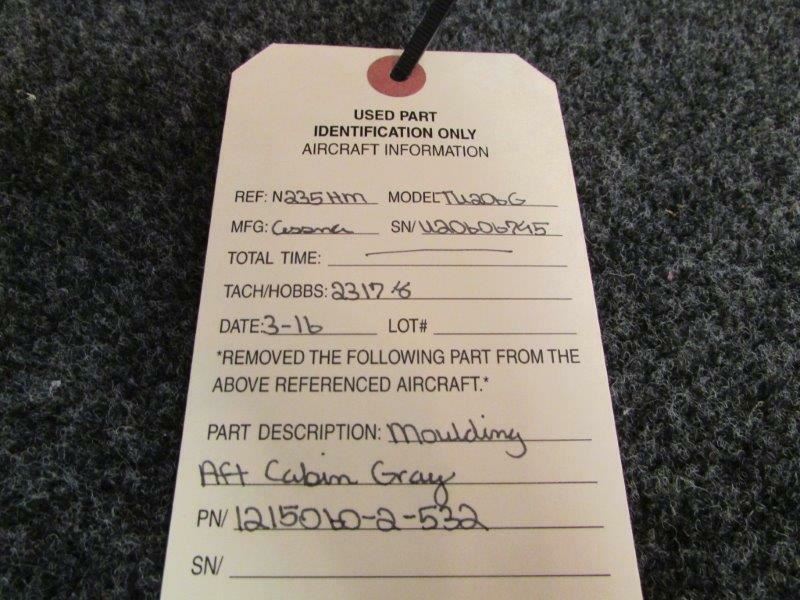 USED PART
IDENTIFICATION ONLY
AIRCRAFT INFORMATION
REF: N235HM MODEL TU206G
MFG: Cessna SN/ U20606745
TOTAL TIME:
TACH/HOBBS: 2317.8
DATE: 3-16 LOT#
*REMOVED THE FOLLOWING PART FROM THE
ABOVE REFERENCED AIRCRAFT.*
PART DESCRIPTION: Moulding
Aft Cabin Gray
PN/ 1215060-2-532
SN/